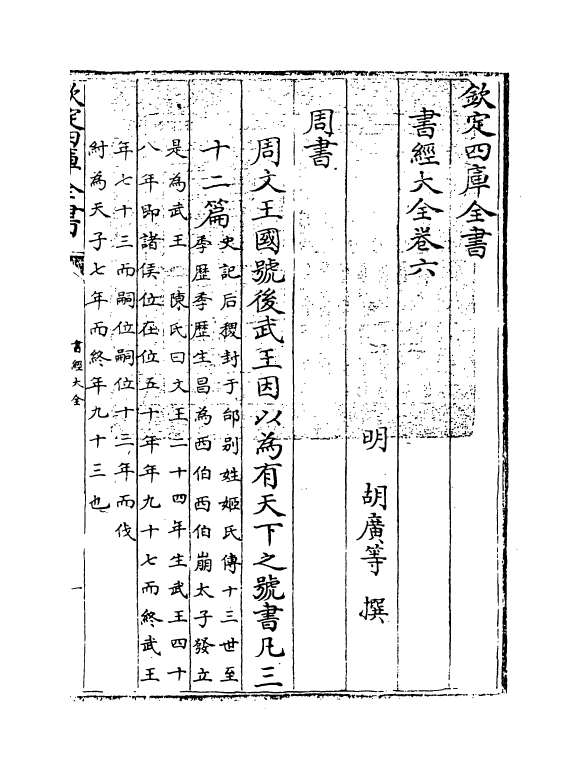 欽定四庫全書
書經大全卷六
明 胡廣等 撰
周書
周文王國號後武王因以為有天下之號書凡三
十二篇
史記后稷封于邰别姓姬氏傳十三世至
季歷季歷生昌為西伯西伯崩太子發立
是為武王 陳氏曰文王二十四年生武王四十
八年即諸侯位在位五十年年九十七而終武王
年七十三而嗣位嗣位十三年而伐
紂為天子七年而終年九十三也
欽定四庫全書
書經大全
一